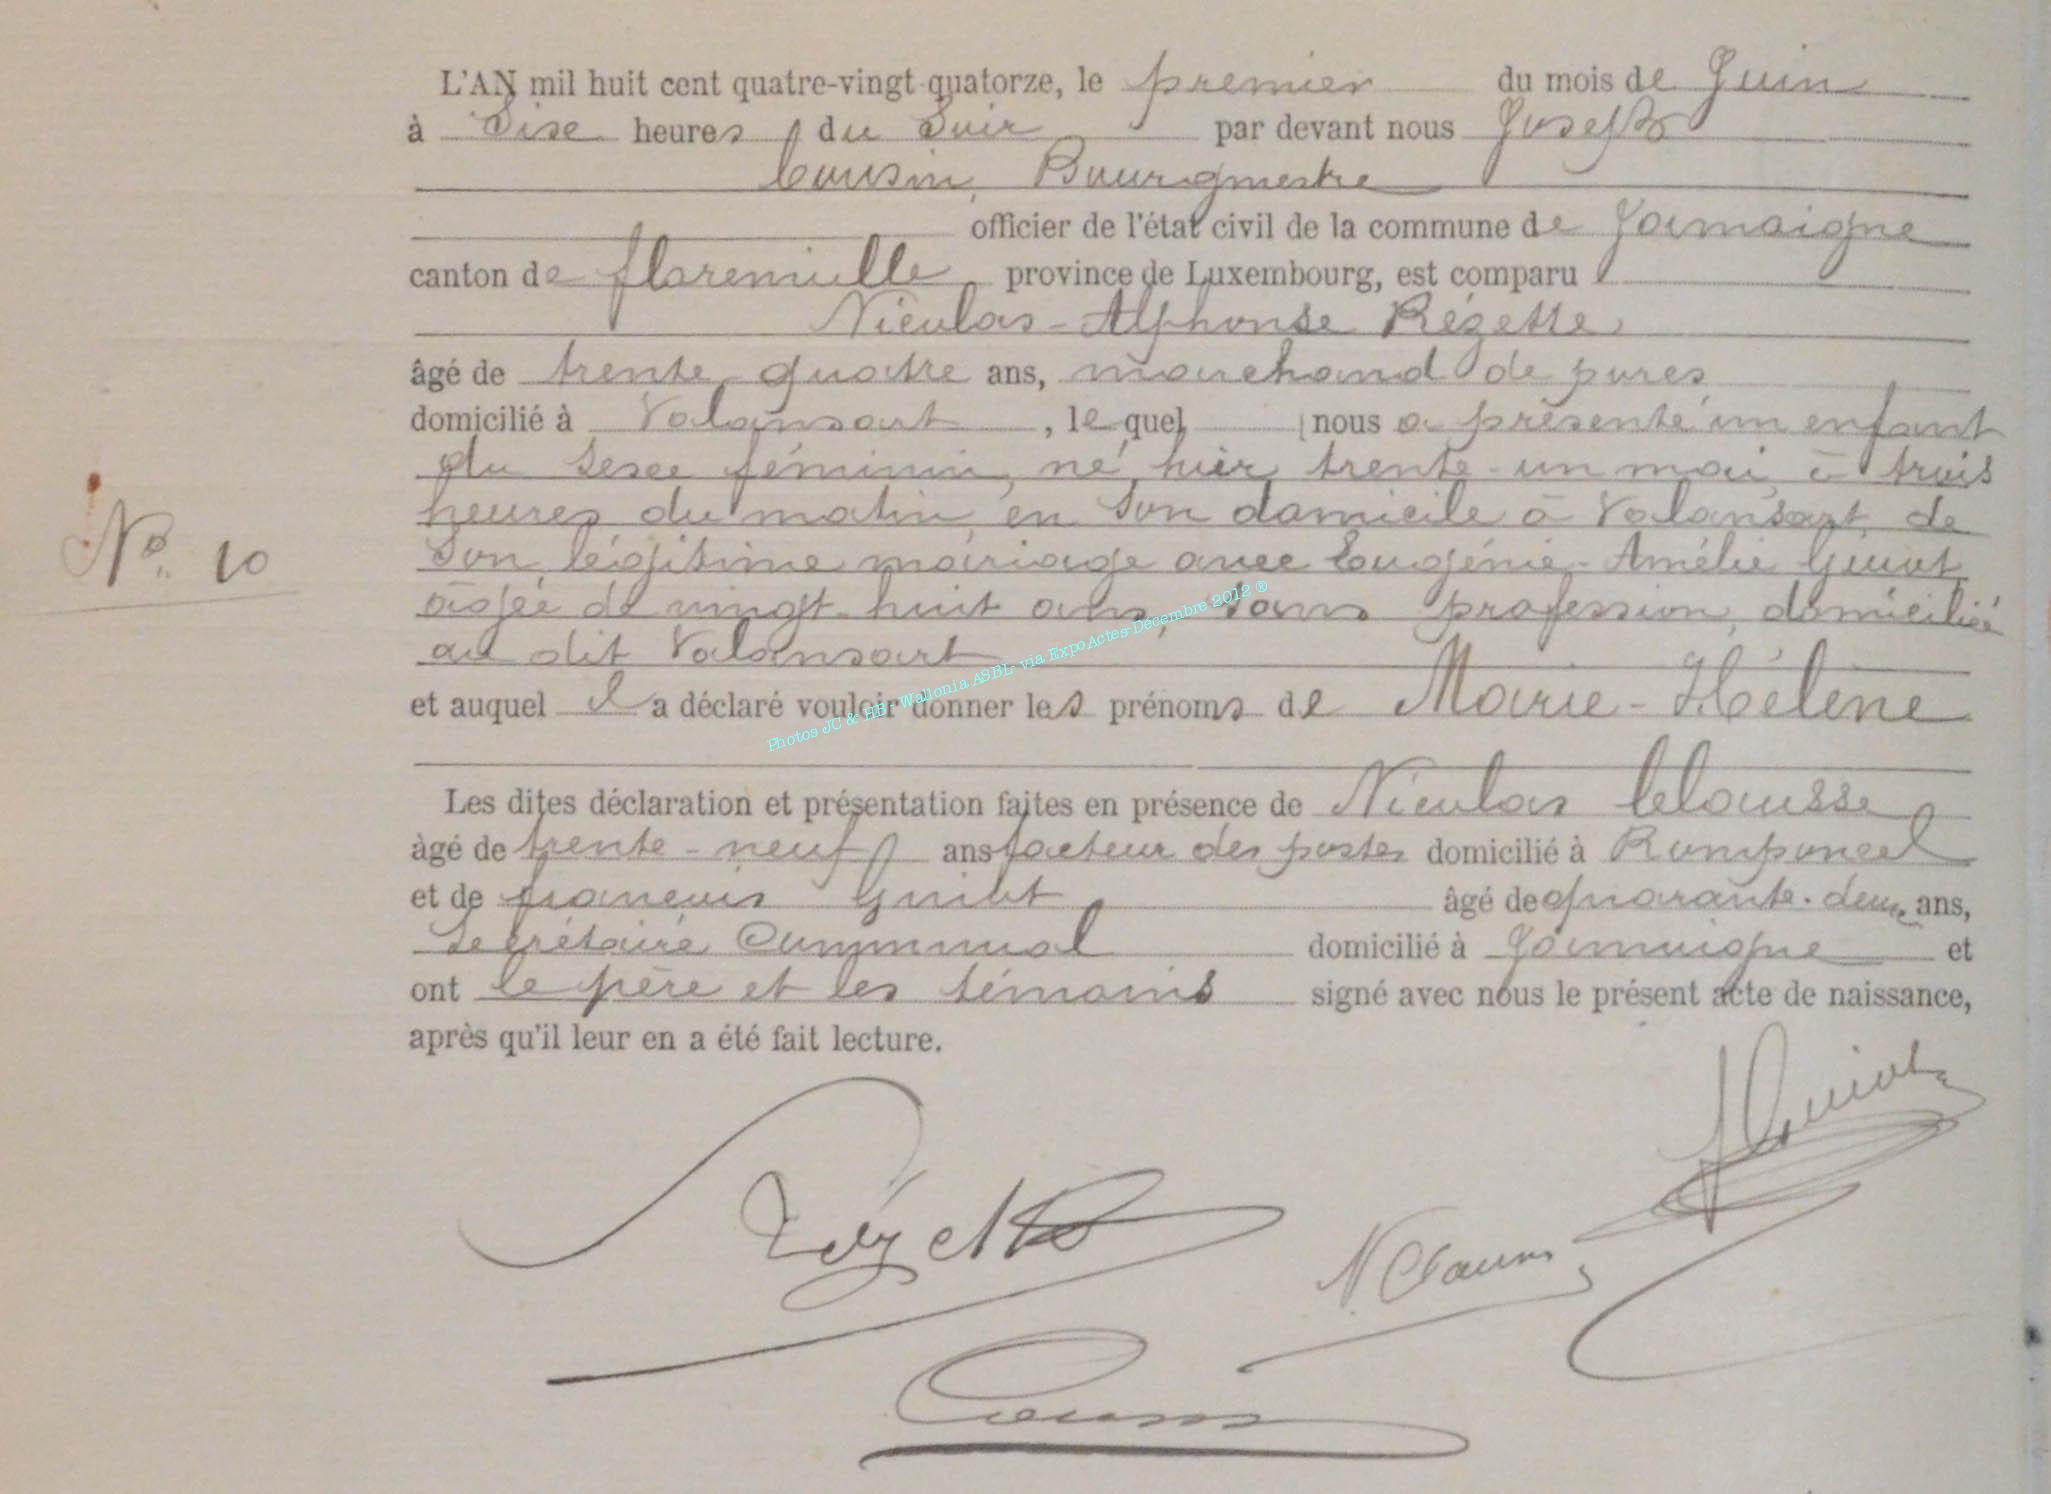 L'AN mil huit cent quatre-vingt-quatorze, le premier du mois de Juin
à Sixe heures du Soir par devant nous Joseph
Cousin, Bourgmestre
officier de l'état civil de la commune de Jamoigne
canton de florenville province de Luxembourg, est comparu
Nicolas-Alphonse Rézette,
âgé de trente quatre ans, marchand de porcs
domicilié à Valansart, lequel nous a présenté un enfant
du sexe féminin, né hier trente-un mai, à trois
heures du matin, en son domicile à Valansart, de
Son légitime mariage avec Eugénie-Amélie Guiot
âgée de vingt-huit ans, sans profession, domiciliée
au dit Valansart
et auquel il a déclaré vouloir donner les prénoms de Marie-Hélène
Les dites déclaration et présentation faites en présence de Nicolas Clausse
âgé de trente-neuf ans facteur des postes domicilié à Romponcel
et de françois Guiot âgé de quarante-deux ans,
Secrétaire Communal domicilié à Jamoigne et
ont le père et les témoins signé avec nous le présent acte de naissance,
après qu'il leur en a été fait lecture.
No. 10
Photos JC & HB - Wallonia ASBL- via ExpoActes-Décembre 2012 ®
F Guiot
Rézette
N Clauss
Cousin